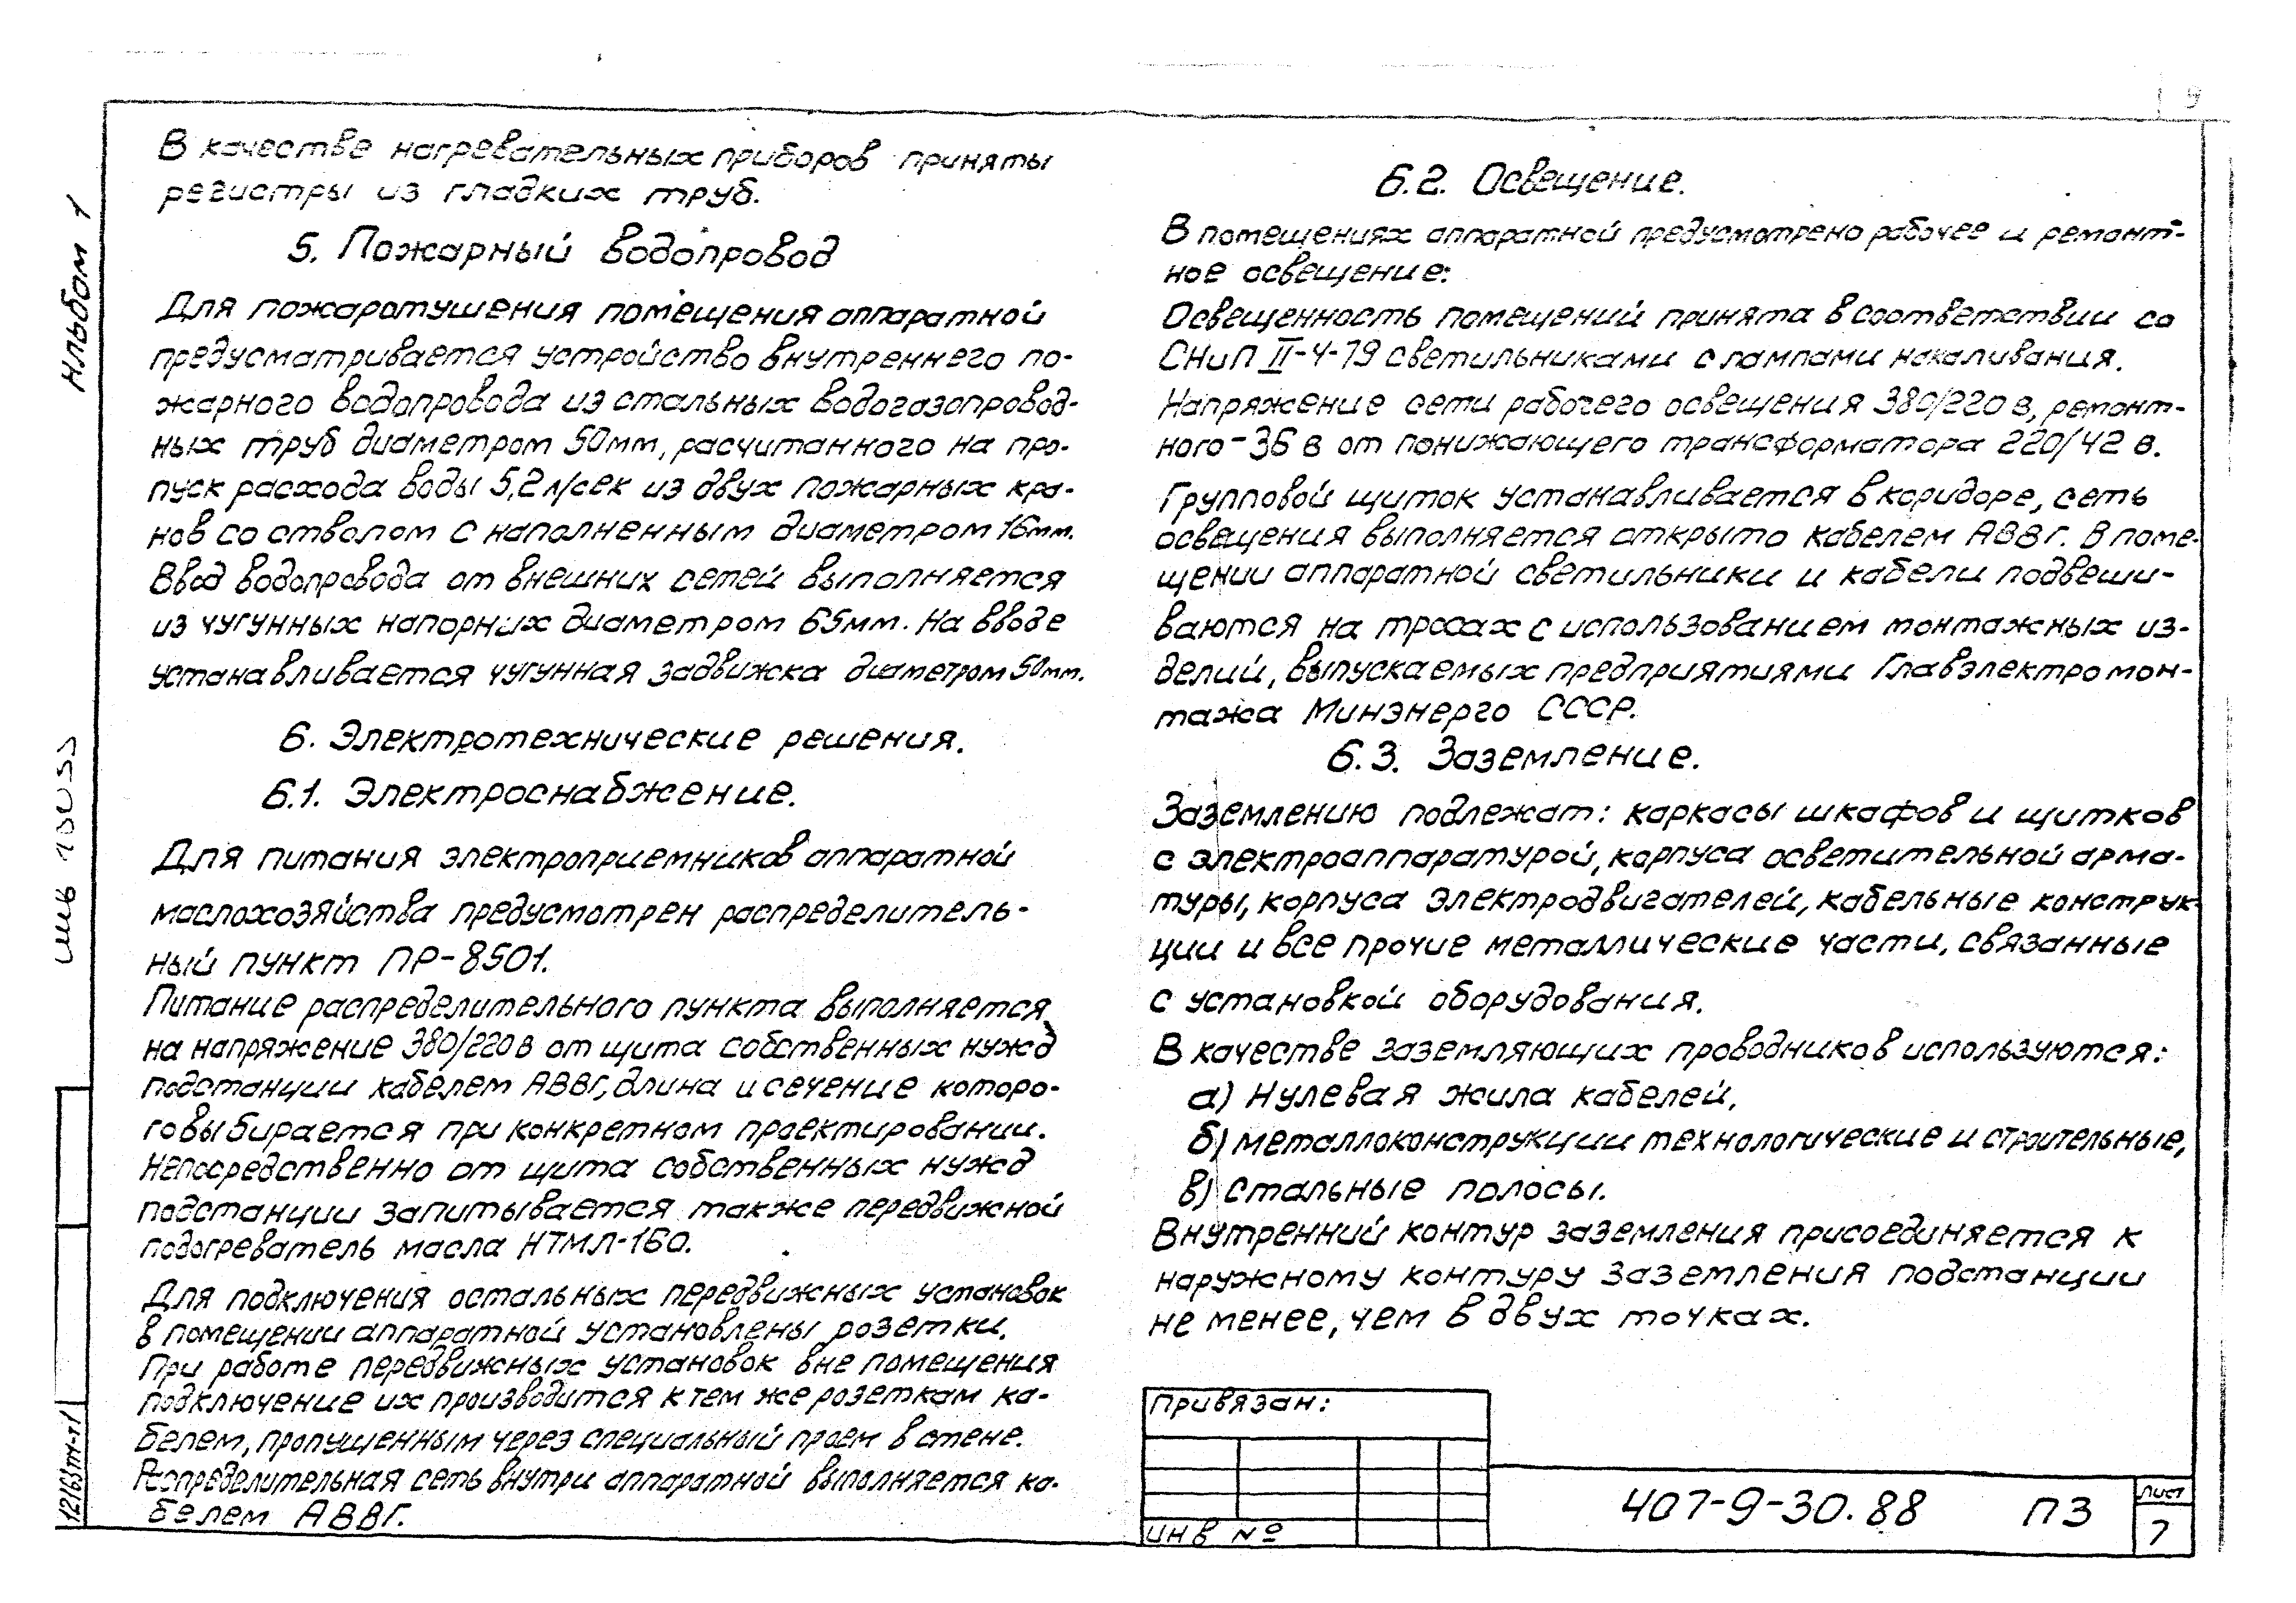 9
В качестве нагревательных приборов приняты
регистры из гладких труб.
5. Пожарный водопровод
Для пожаротушения помещения аппаратной
предусматривается устройство внутреннего по-
жарного водопровода из стальных водогазопровод-
ных труб диаметром 50мм, расчитанного на про-
пуск расхода воды 5,2 л/сек из двух пожарных кра-
нов со стволом с наполненным диаметром 16мм.
Ввод водопровода от внешних сетей выполняется
из чугунных напорних диаметром 65мм. На вводе
устанавливается чугунная задвижка диаметром 50мм.
6. Электротехнические решения.
6.1. Электроснабжение.
Для питания электроприемников аппаратной
маслохозяйства предусмотрен распределитель-
ный пункт ПР-8501.
Питание распределительного пункта выполняется
на напряжение 380/220 в от щита собственных нужд
подстанции кабелем АВВГ, длина и сечение которо-
го выбирается при конкретном проектировании.
Непосредственно от щита собственных нужд
подстанции запитывается также передвижной
подогреватель масла НТМЛ-160.
Для подключения остальных передвижных установок
в помещении аппаратной установлены розетки.
При работе передвижных установок вне помещения
подключение их производится к тем же розеткам ка-
белем, пропущенным через специальный проем в стене.
Распределительная сеть внутри аппаратной выполняется ка-
белем АВВГ.
6.2. Освещение.
В помещениях аппаратной предусмотрено рабочее и ремонт-
ное освещение:
Освещенность помещений принята в соответствии со
СНиП II-4-79 светильниками с лампами накаливания.
Напряжение сети рабочего освещения 380/220 в, ремонт-
ного - 36 в от понижающего трансформатора 220/42 в.
Групповой щиток устанавливается в коридоре, сеть
освещения выполняется открыто кабелем АВВГ. В поме-
щении аппаратной светильники и кабели подвеши-
ваются на тросах с использованием монтажных из-
делий, выпускаемых предприятиями Главэлектромон-
тажа Минэнерго СССР.
6.3. Заземление.
Заземлению подлежат: каркасы шкафов и щитков
с электроаппаратурой, корпуса осветительной арма-
туры, корпуса электродвигателей, кабельные конструк-
ции и все прочие металлические части, связанные
с установкой оборудования.
В качестве заземляющих проводников используются:
а) Нулевая жила кабелей,
б) металлоконструкции технологические и строительные,
в) стальные полосы.
Внутренний контур заземления присоединяется к
наружному контуру заземления подстанции
не менее, чем в двух точках.
Привязан:
ИНВ №
407-9-30.88 ПЗ
Лист
7
Альбом 1
12163тм-т1